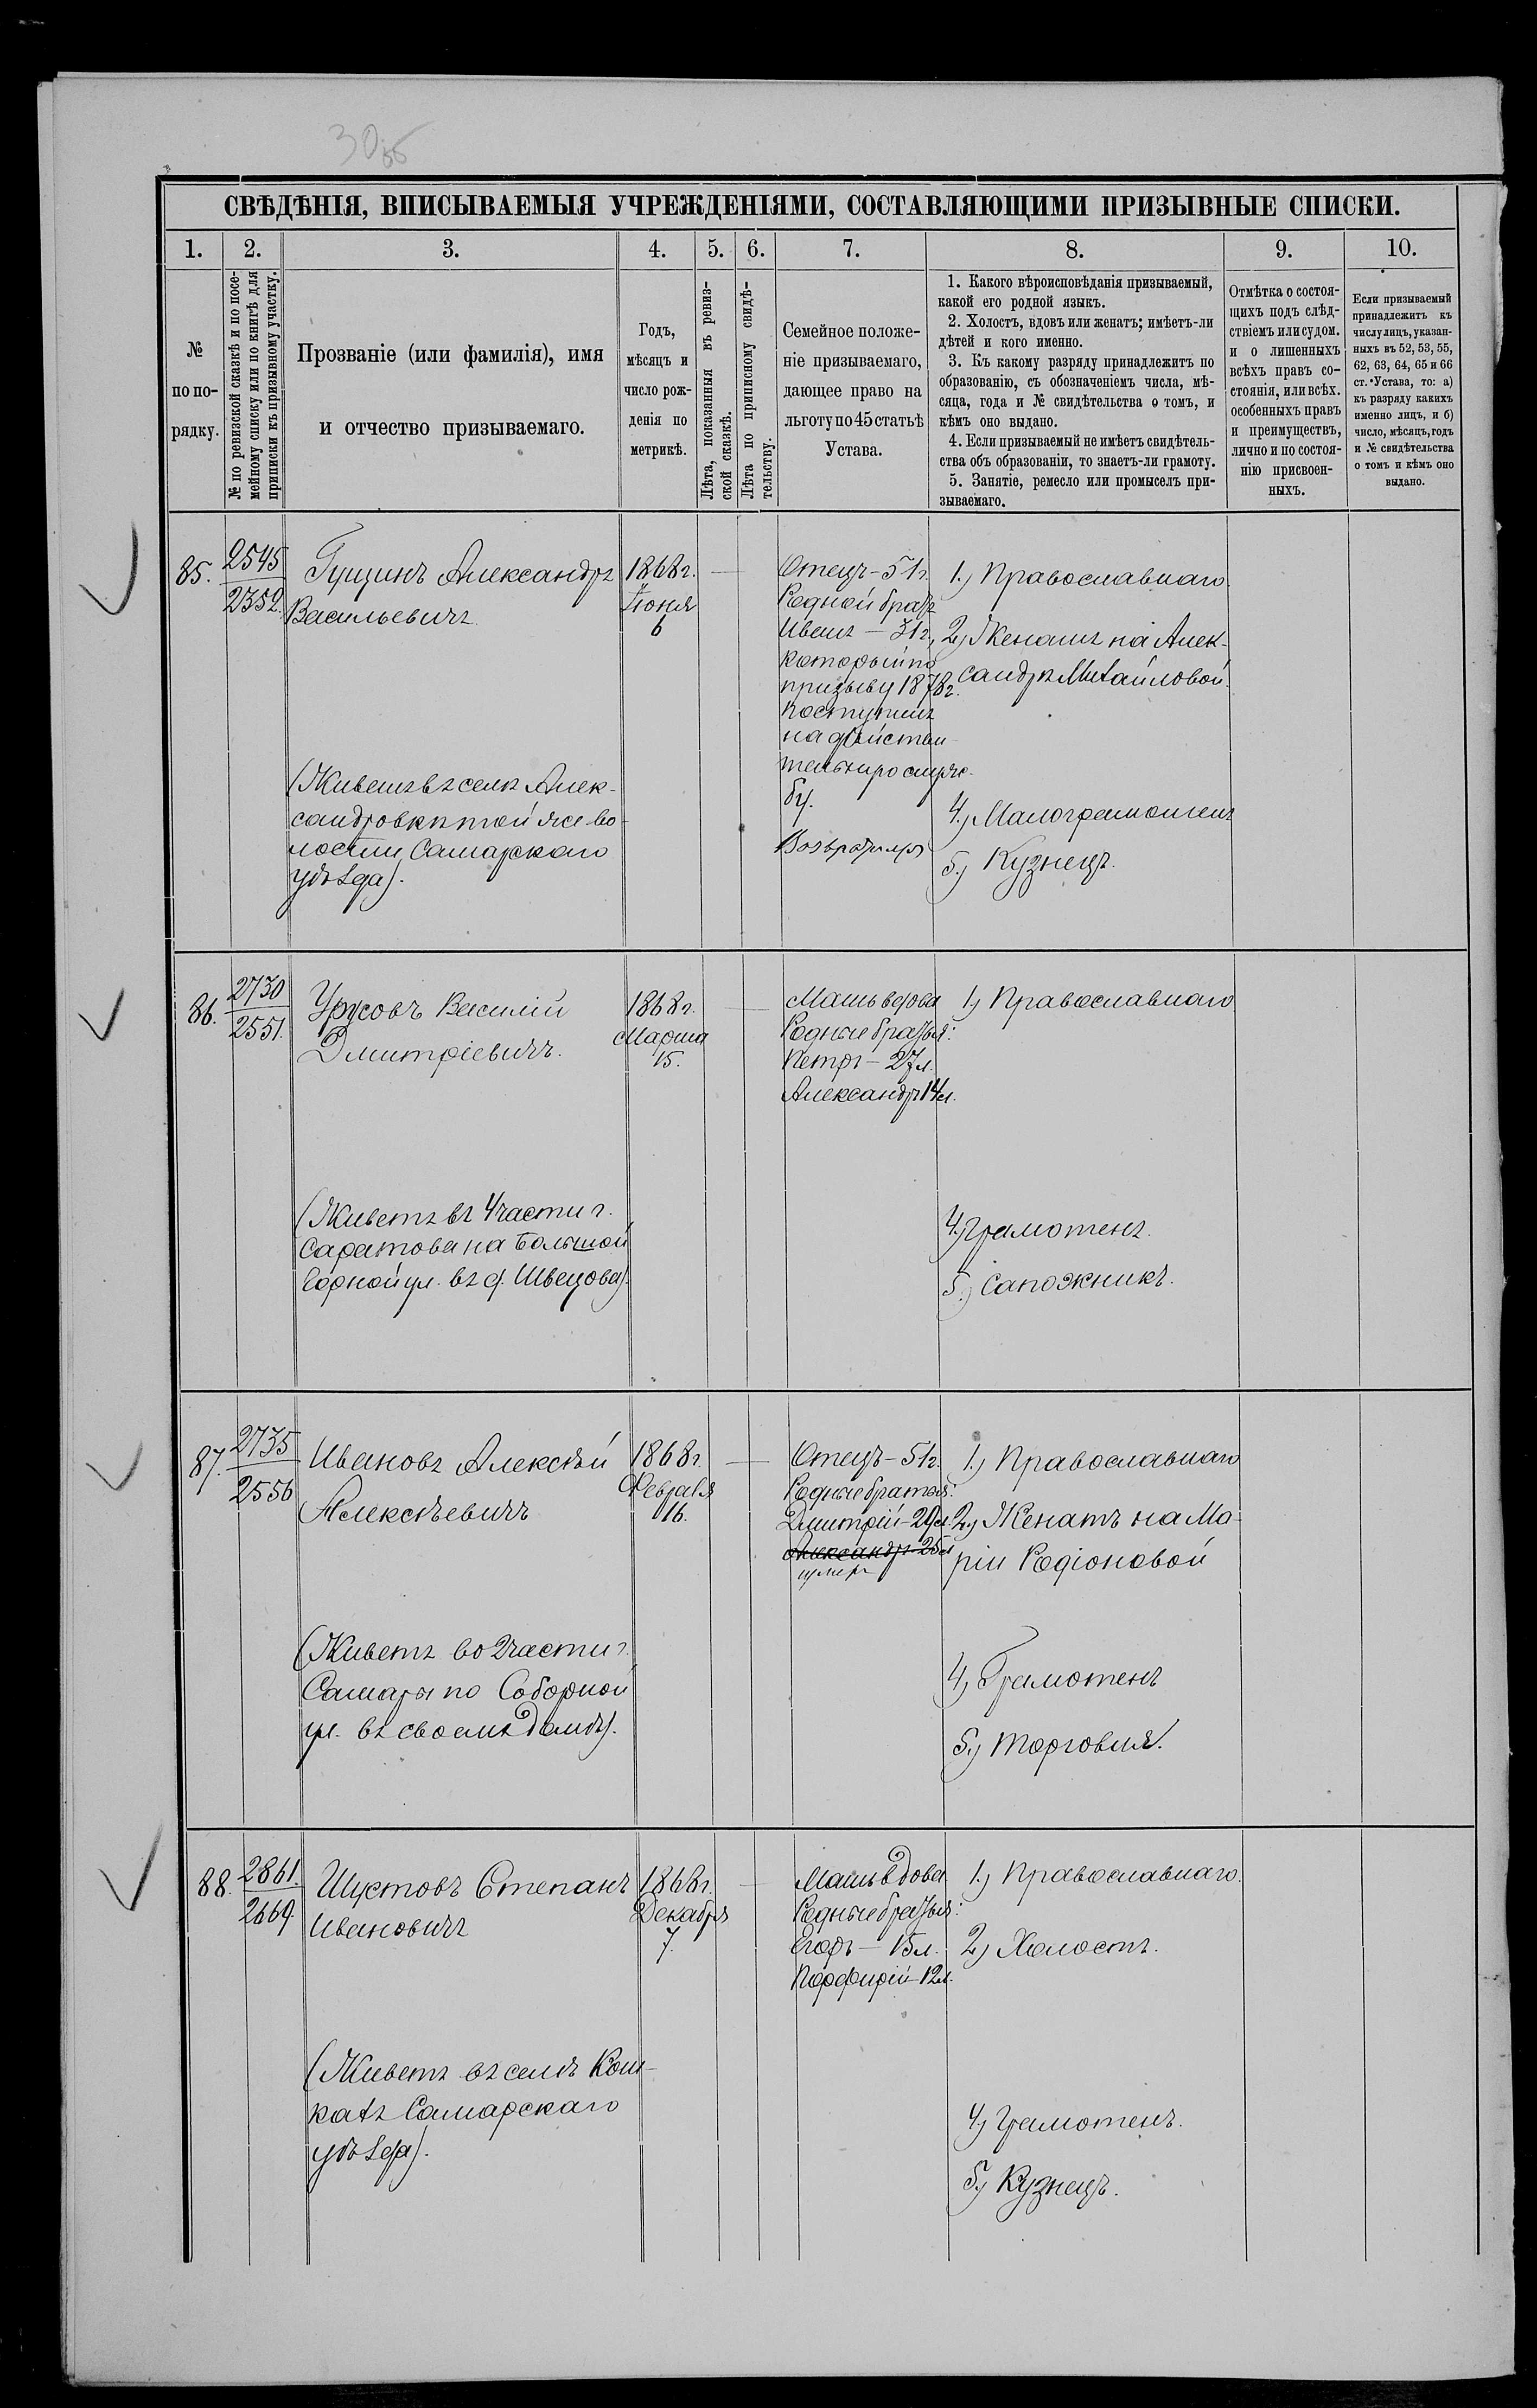 30об
СВѢДѢНІЯ, ВПИСЫВАЕМЫЯ УЧРЕЖДЕНІЯМИ, СОСТАВЛЯЮЩИМИ ПРИЗЫВНЫЕ СПИСКИ.
1.
2.
3.
4.
5.
6.
7.
8.
9.
10.
№
по по-
рядку.
№ по ревизской сказкѣ и по посе-
мейному списку или по книгѣ для
приписки къ призывному участку.
Прозваніе (или фамилія), имя
и отчество призываемаго.
Годъ,
мѣсяцъ и
число рож-
денія по
метрикѣ.
Лѣта, показанныя въ ревиз-
ской сказкѣ.
Лѣта по приписному свидѣ-
тельству.
Семейное положе-
ніе призываемаго,
дающее право на
льготу по 45 статьѣ
Устава.
1. Какого вѣроисповѣданія призываемый,
какой его родной языкъ.
2. Холостъ, вдовъ или женатъ; имѣетъ-ли
дѣтей и кого именно.
3. Къ какому разряду принадлежитъ по
образованію, съ обозначеніемъ числа, мѣ-
сяца, года и № свидѣтельства о томъ, и
кѣмъ оно выдано.
4. Если призываемый не имѣетъ свидѣтель-
ства объ образованіи, то знаетъ-ли грамоту.
5. Занятіе, ремесло или промыселъ при-
зываемаго.
Отмѣтка о состоя-
щихъ подъ слѣд-
ствіемъ или судом.
и о лишенныхъ
всѣхъ правъ со-
стоянія, или всѣх.
особенныхъ правъ
и преимуществъ,
лично и по состоя-
нію присвоен-
ныхъ.
Если призываемый
принадлежитъ къ
числу лицъ, указан-
ныхъ въ 52, 53, 55,
62, 63, 64, 65 и 66
ст. Устава, то: а)
къ разряду какихъ
именно лицъ, и б)
число, мѣсяцъ, годъ
и № свидѣтельства
о томъ и кѣмъ оно
выдано.
85.
2545
2352.
Гущинъ Александръ
Васильевичъ
(Живетъ въ селѣ Алек-
сандровкѣ той же во-
лости Самарскаго
уѣзда).
1868г.
Іюня
6
Отецъ - 51г.
Родной братъ
Иванъ - 31г.,
который по
призыву 1878г.
поступилъ
на дѣйстви-
тельную служ-
бу.
Возвратился
1.) Православнаго
2.) Женатъ на Алек-
сандрѣ Михайловой.
4.) Малограмотенъ
5.) Кузнецъ.
86.
2730
2551.
Урусовъ Василій
Дмитріевичъ.
(Живетъ въ 4 части г.
Саратова на Большой
Горной ул. въ д. Швецова).
1868г.
Марта
15.
Мать вдова
Родные братья:
Петръ - 27л.
Александръ 14л.
1.) Православнаго
4.) Грамотенъ.
5.) Сапожникъ.
87.
2735
2556
Ивановъ Алексѣй
Алексѣевичъ
(Живетъ во 2 части г.
Самары по Соборной
ул. въ своемъ домѣ).
1868г.
Февраля
16.
Отецъ - 51г.
Родные братья:
Дмитрій - 29л.
Александръ - 25л
умеръ
1.) Православнаго
2.) Женатъ на Ма-
ріи Родіоновой
4.) Грамотенъ
5.) Торговля.
88.
2861.
2669.
Шустовъ Степанъ
Ивановичъ
(Живетъ въ селѣ Кош-
кахъ Самарскаго
уѣзда).
1868г.
Декабря
7.
Мать вдова
Родные братья:
Егоръ - 15л.
Порфирій - 12л.
1.) Православнаго.
2.) Холостъ.
4.) Грамотенъ.
5.) Кузнецъ.